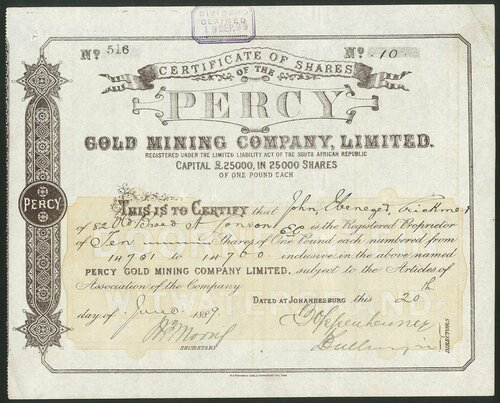 DIVIDEND
CLAIMED
19 SEP. 89
No 516
No 10
CERTIFICATE OF SHARES
OF THE
PERCY
GOLD MINING COMPANY, LIMITED.
REGISTERED UNDER THE LIMITED LIABILITY ACT OF THE SOUTH AFRICAN REPUBLIC
CAPITAL £25000, IN 25000 SHARES
OF ONE POUND EACH
THIS IS TO CERTIFY that John, Ebenezer,
of 82 Old Broad St London is the Registered Proprietor
of Ten Shares of One Pound each numbered from
14751 to 14760 inclusive in the above named
PERCY GOLD MINING COMPANY LIMITED. subject to the Articles of
Association of the Company
DATED AT JOHANNESBURG this 20th
day of June 1889.
SECRETARY
DIRECTORS
PERCY
WITWATERSRAND